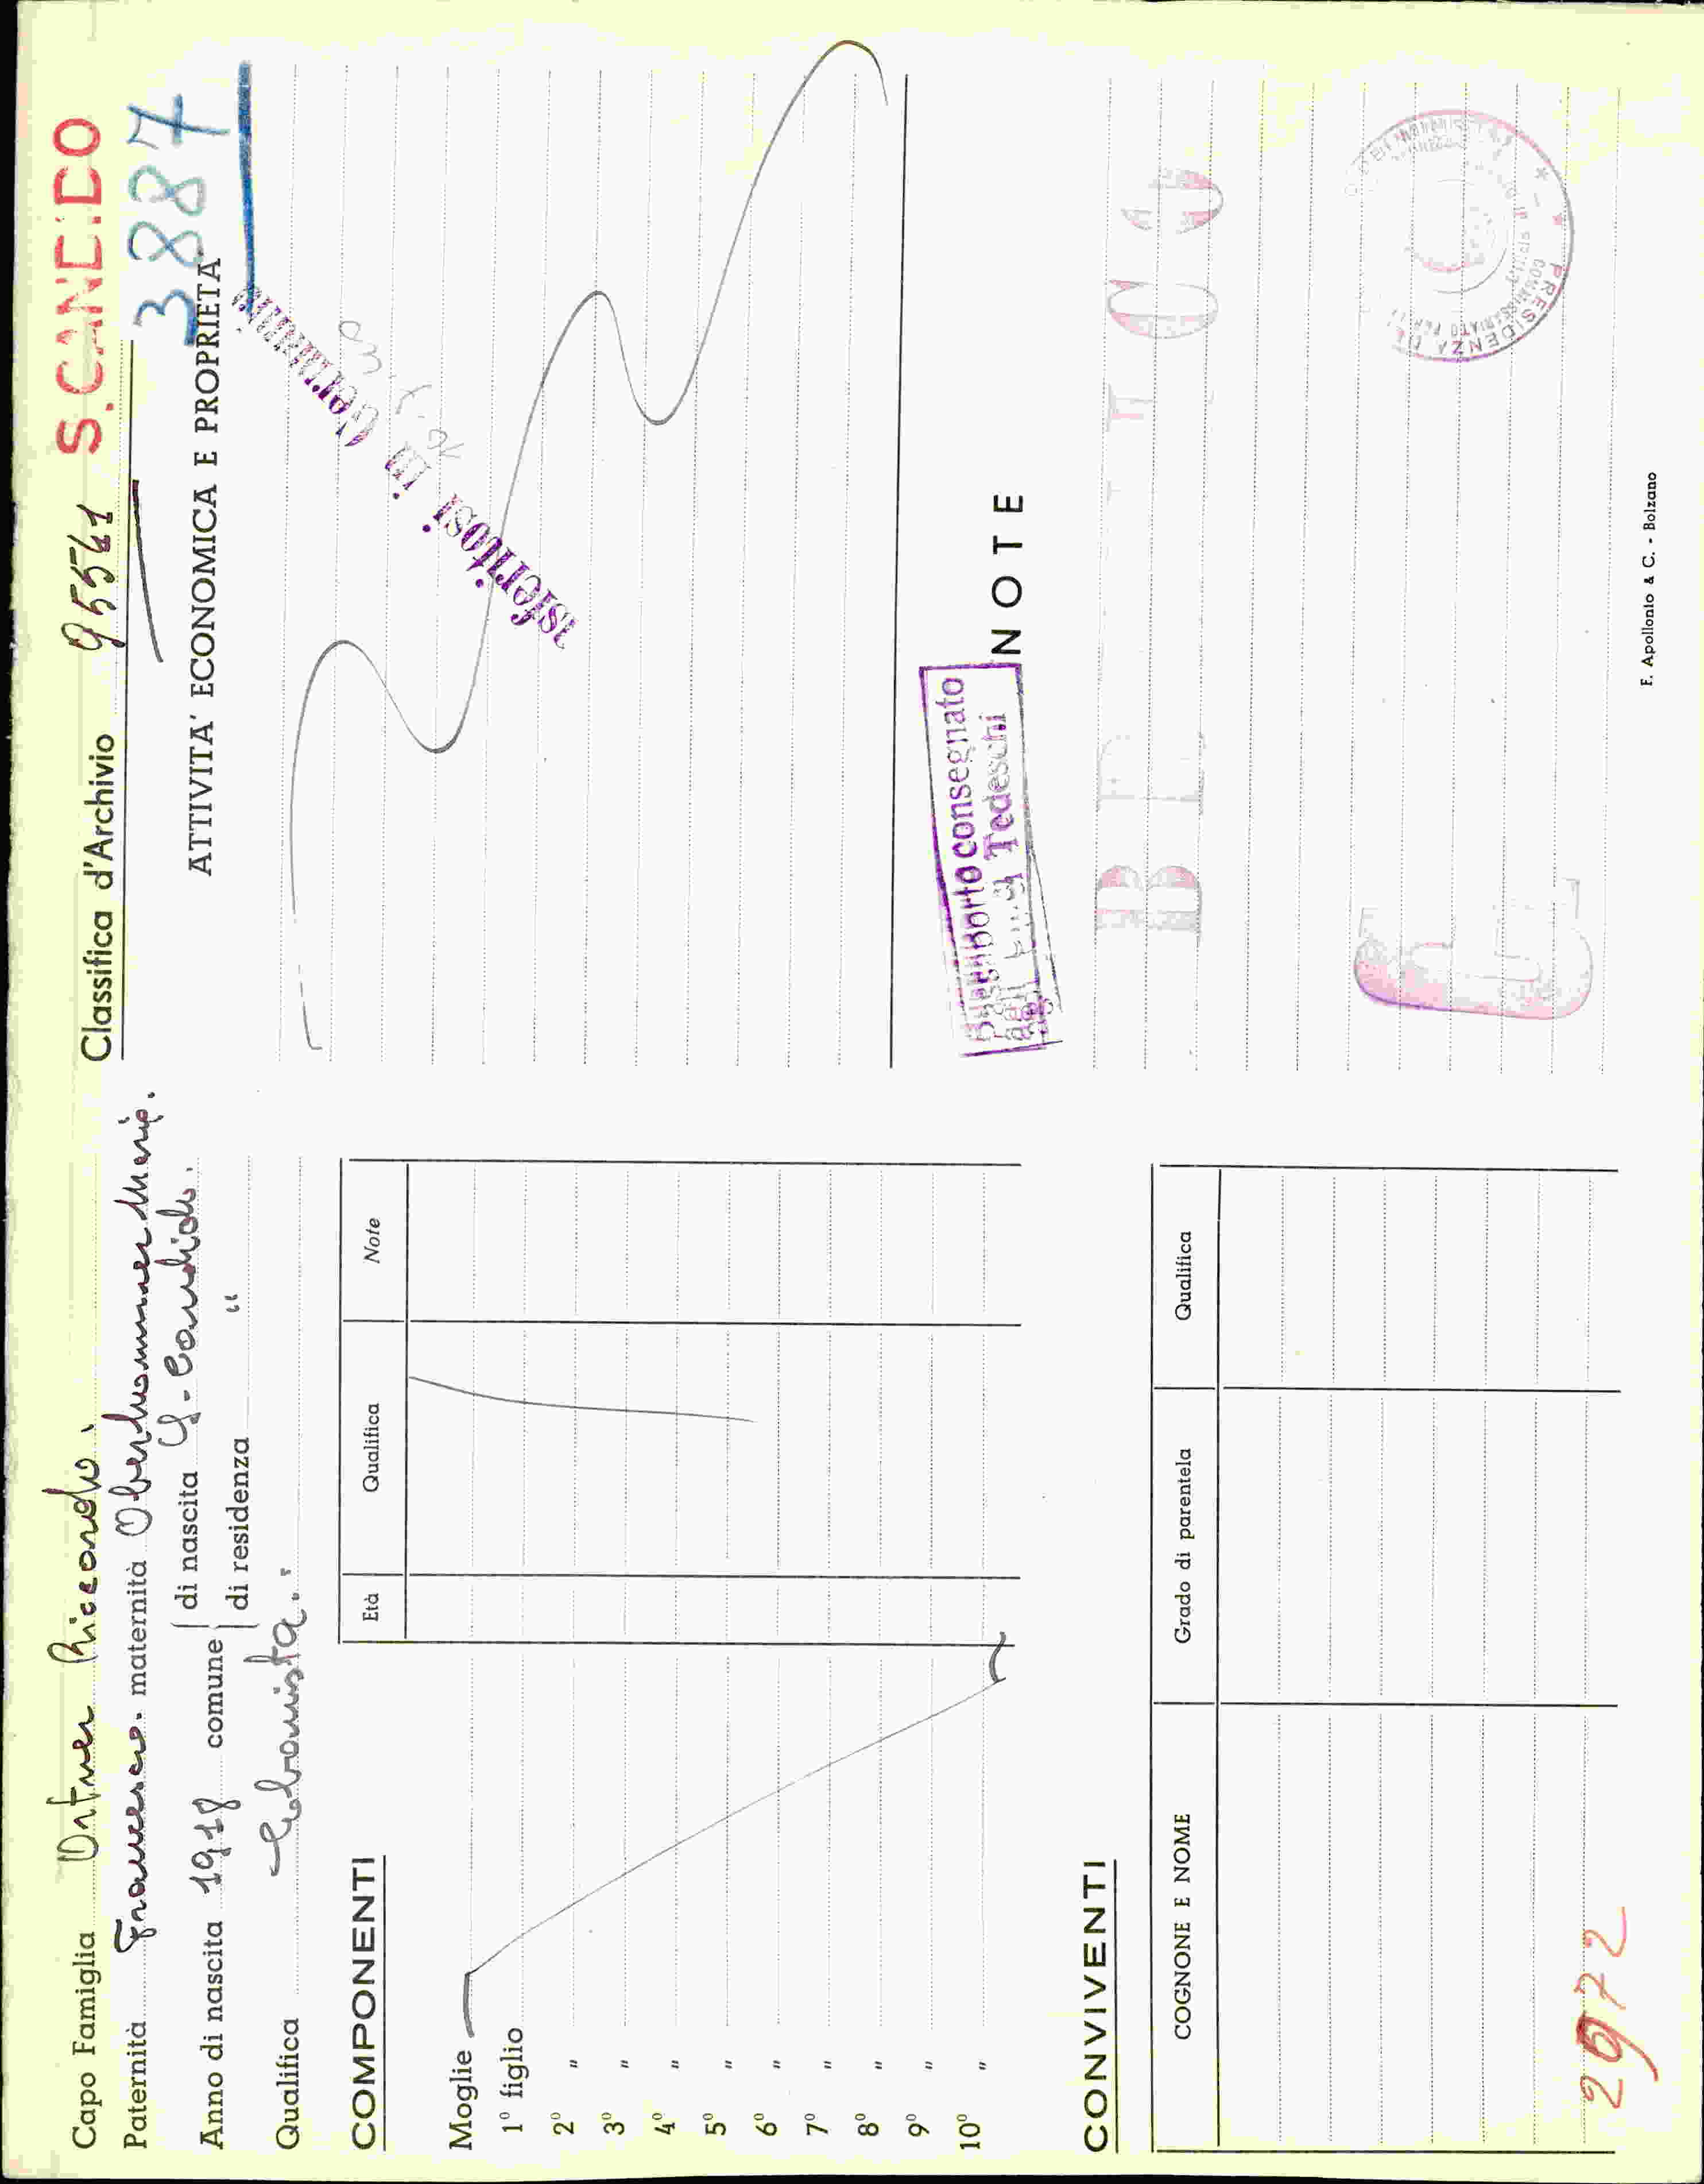 Capo Famiglia Ortner Riccardo.
Paternità Francesco. maternità Oberhammer Maria.
Anno di nascita 1918 comune
di nascita S. Candido.
di residenza "
Qualifica Ebanista.
COMPONENTI
Età Qualifica Note
Moglie
1º figlio
2º "
3º "
4º "
5º "
6º "
7º "
8º "
9º "
10º "
CONVIVENTI
COGNONE E NOME Grado di parentela Qualifica
2972
Classifica d'Archivio 95541 S. CANDIDO
3887
ATTIVITA' ECONOMICA E PROPRIETA'
sferitosi in Germania
consegnato
Tedeschi
NOTE
PRESIDENZA DEL
COMMISSARIATO PER
E. Apollonio & C. - Bolzano